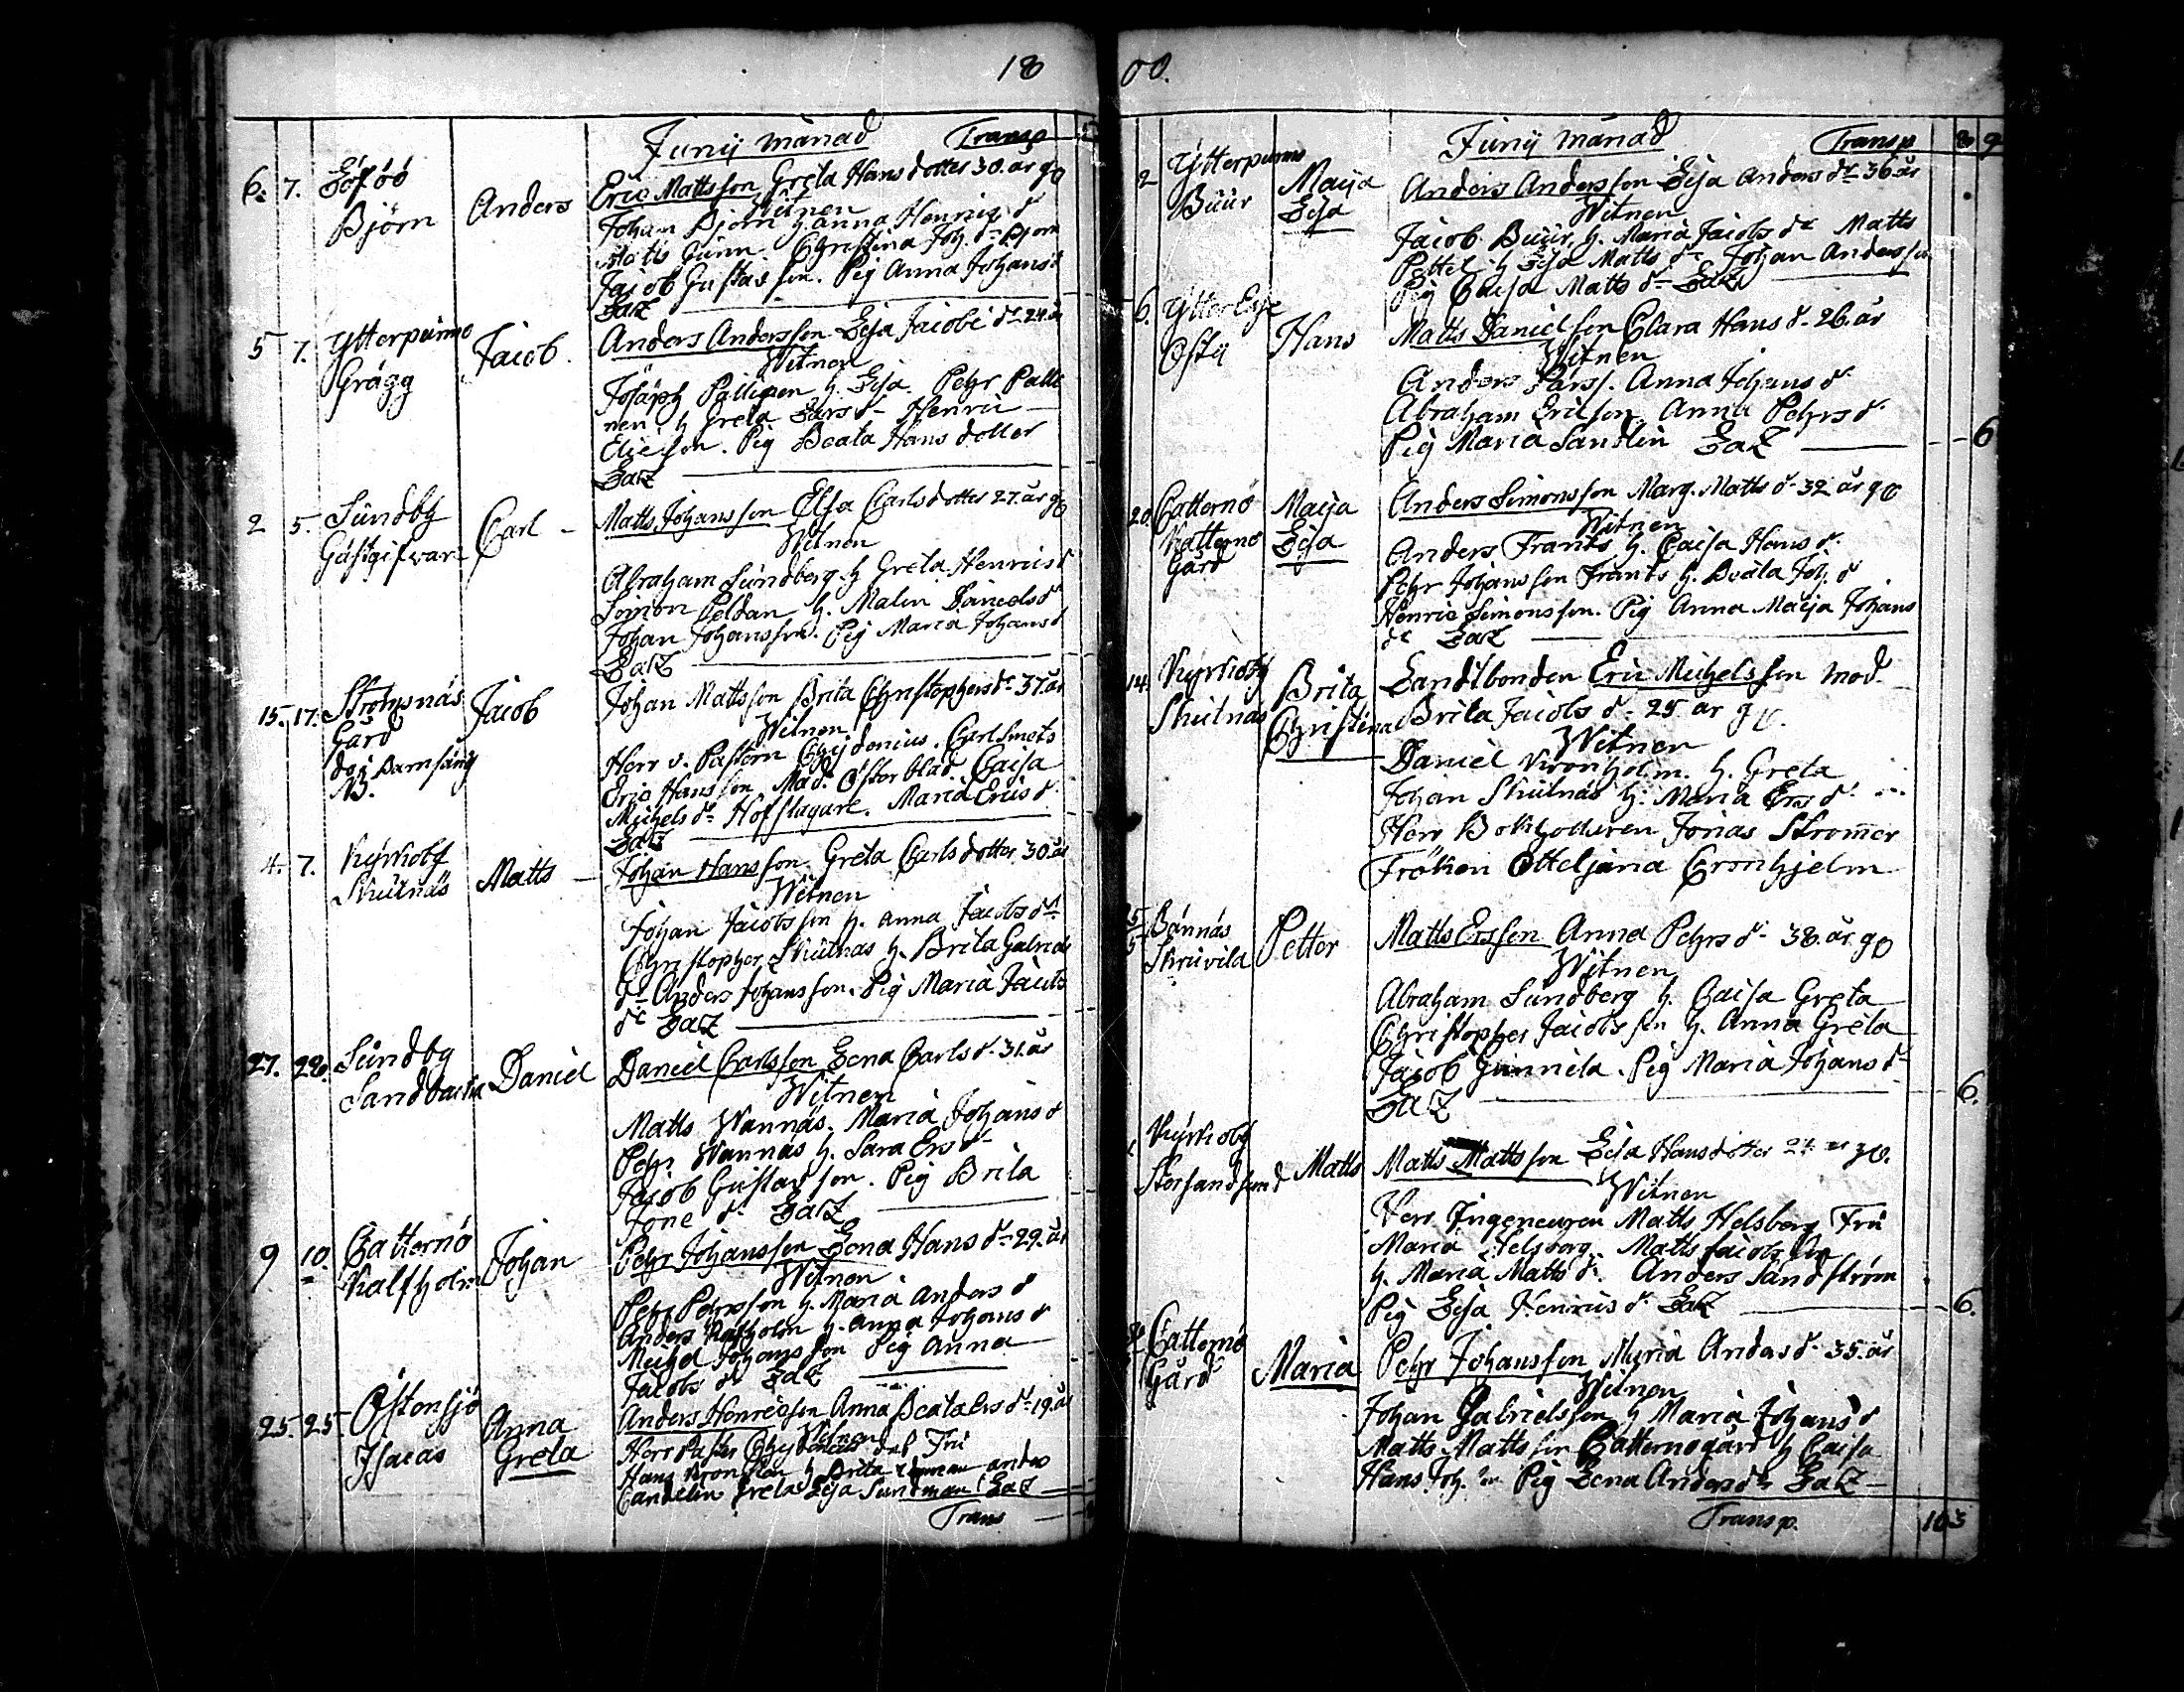 18
Junij månad Transp
6. 7. Löföö Anders Eric Mattsson Greta Hans dotter 30. år
Björn Witnen
Johan Björn h. Anna Henrics d
Matts Gunn. Christina Joh. dr Björn
Jacob Gustafsson. Pig Anna Johans d
Latz
5 7. Ytterpurmo Jacob. Anders Andersson Lisa Jacobs dr 24. år
Grägg Witnen
Josäph Pälligen h. Lisa. Pehr Palli
nen h Greta Lars d Henric
Ericsson. Pig Beata Hans dotter
Latz
2 5. Sundby Carl Matts Johansson Elsa Carlsdotter 27. år
Gästgifvare Witnen
Abraham Sundberg h Greta Henrics d
Simon Peldan h. Malin Daniels d
Johan Johansson. Pig Maria Johans d
Latz
15. 17. Strömsnäs Jacob Johan Mattsson Brita Christophers dr 37. år
Gård Witnen
Herr v. Pastorn Chydenius. Carl
NB. Eric Hansson Mad. Österblad Caisa
Michels dr Hofslagare. Maria Erics d.
Latz
4. 7. Kyrkoby Matts Johan Hansson Greta Carls dotter 30. år
Skutnäs Witnen
Johan Jacobsson h. Anna Jacobs dr
Christopher Skutnäs h. Brita Gabriels
dr Anders Johansson. Pig Maria Jacobs
dr Latz
27. 28. Sundby Daniel Daniel Carlsson Lena Carls d. 31. år
Sandbacka Witnen
Matts Wannäs. Maria Johans d
Pehr Wannäs h. Sara Ers d
Jacob Gustafsson. Pig Brita
Jone d. Latz
9 10. Catternö Johan Pehr Johansson Lena Hans dr 29. år
Kalfholm Witnen
Pehr Pehrsson h. Maria Anders d
Anders Kalfholm h. Anna Johans d
Michel Johansson Pig Anna
Jacobs dr Latz
25. 25. Östensjö Anna Anders Henricsson Anna Beata Ers dr 19. år
Isacas Greta Witnen
Herr Pastor Chydenius Fru
Hans h Brita
Candelin Greta Lisa Sundman Latz
Trans
00.
Junij månad Transp
2 Ytterpurmo Maija Anders Andersson Lisa Anders dr 36 år
Buur Lisa Witnen
Jacob Buur, h. Maria Jacobs dr Matts
Pettel h Lisa Matts dr Johan Andersson
Pig Caisa Matts dr Latz
6. Ytter Esse Hans Matts Danielsson Clara Hans d. 26. år
Witnen
Anders Larss. Anna Johans d.
Abraham Ericson Anna Pehrs d.
Pig Maria Sandlin Latz 6
20. Catternö Maija Anders Simonsson Marg. Matts d. 32 år
Katternö Lisa Witnen
Gård Anders Frants h. Caisa Hans d.
Pehr Johansson Frants h. Beata Joh. d
Henric Simonsson. Pig Anna Maija Johans
dr Latz
14. Kyrkoby Brita Landtbonden Eric Michelsson mod.
Skutnäs Christina Brita Jacobs d. 25 år
Witnen
Daniel Kronholm. h. Greta
Johan Skutnäs h. Maria Ers d.
Herr Bokhollaren Jonas Strömer
Fröken Otteljana Cronhjelm
Bännäs Petter Matts Ersson Anna Pehrs d. 38. år
Skruvila Witnen
Abraham Sundberg h. Caisa Greta
Christopher Jacobsson h. Anna Greta
Jacob Gunnila. Pig Maria Johans d
Latz 6.
Kyrkoby Matts Matts Mattsson Lisa Hansdotter
Storsandsund Witnen
Herr Ingeneuren Matts Helsberg Fru
Maria Helsberg. Matts Jacobsson
h. Maria Matts d. Anders Sandström
Pig Lisa Henrics d. Latz 6.
Catternö Maria Pehr Johansson Maria Anders d. 35. år
Gård Witnen
Johan Gabrielsson h Maria Johans d
Matts Mattsson Catternogård h Caisa
Hans Joh. Pig Lena Anders dr Latz
Transp. 103